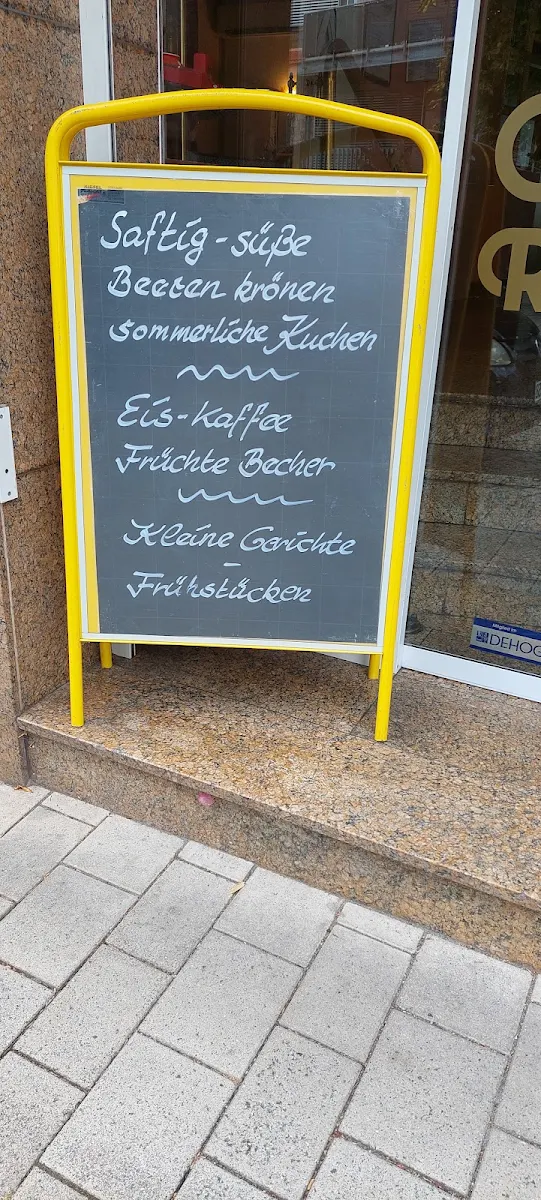 Saftig-süße
Beeren krönen
sommerliche Kuchen
Eis-Kaffee
Früchte Becher
Kleine Gerichte
-
Frühstücken
Mitglied im
DEHOG